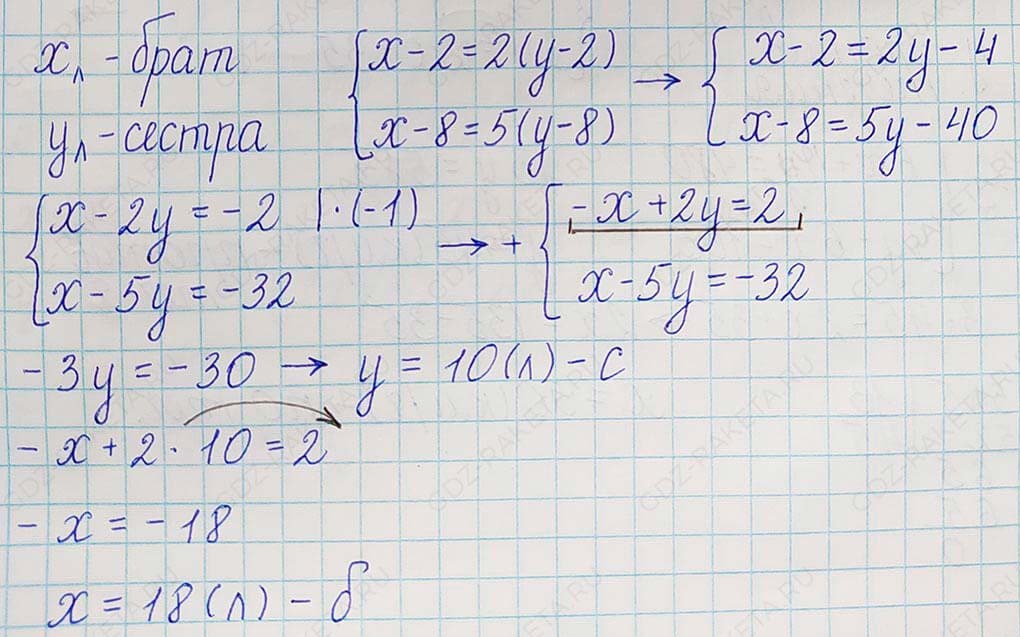 xл - брат
yл - сестра
{x - 2 = 2(y - 2) → {x - 2 = 2y - 4
{x - 8 = 5(y - 8) {x - 8 = 5y - 40
{x - 2y = -2 | · (-1) → + {-x + 2y = 2
{x - 5y = -32 {x - 5y = -32
-3y = -30 → y = 10(л) - с
-x + 2 · 10 = 2
-x = -18
x = 18(л) - б